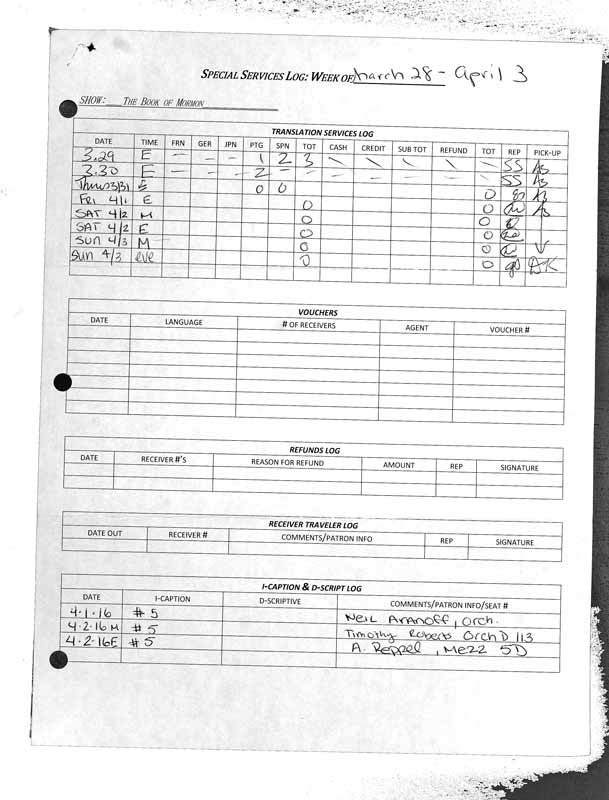 SPECIAL SERVICES LOG: WEEK OF: March 28 - April 3
SHOW: THE BOOK OF MORMON
TRANSLATION SERVICES LOG
DATE TIME FRN GER JPN PTG SPN TOT CASH CREDIT SUB TOT REFUND TOT REP PICK-UP
3.29 E - - - 1 2 3 \ \ \ \ \ SS As
3.30 E - - - 2 - - - - - - - SS As
Thurs 3/31 E 0 0 0
Fri 4/1 E 0 0
SAT 4/2 M 0 0
SAT 4/2 E 0 0
SUN 4/3 M 0 0
Sun 4/3 eve 0 0 DK
VOUCHERS
DATE LANGUAGE # OF RECEIVERS AGENT VOUCHER #
REFUNDS LOG
DATE RECEIVER #'S REASON FOR REFUND AMOUNT REP SIGNATURE
RECEIVER TRAVELER LOG
DATE OUT RECEIVER # COMMENTS/PATRON INFO REP SIGNATURE
I-CAPTION & D-SCRIPT LOG
DATE I-CAPTION D-SCRIPTIVE COMMENTS/PATRON INFO/SEAT #
4.1.16 #5 Neil Aranoff, Orch.
4.2.16 M #5 Timothy Roberts Orch D 113
4.2.16E #5 A. Reppel, Mezz 5D